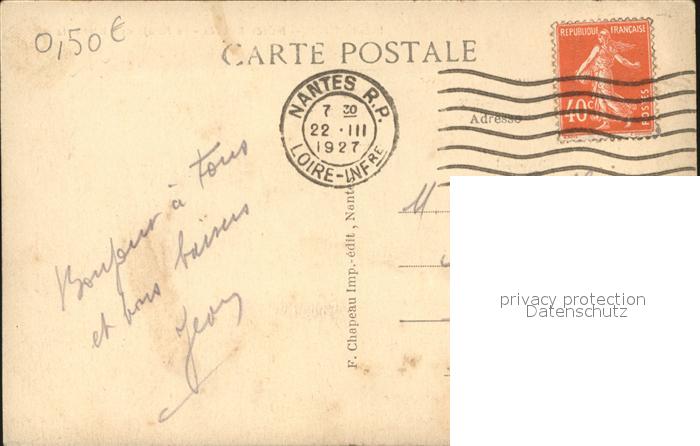 0,50€
CARTE POSTALE
REPUBLIQUE FRANÇAISE
40c
POSTES
NANTES R.P.
7 30
22 · III
1927
LOIRE-INFRE
Adresse
Bonjour à Tous
et bons baisers
Jean
F. Chapeau Imp.-édit, Nantes
M
privacy protection
Datenschutz